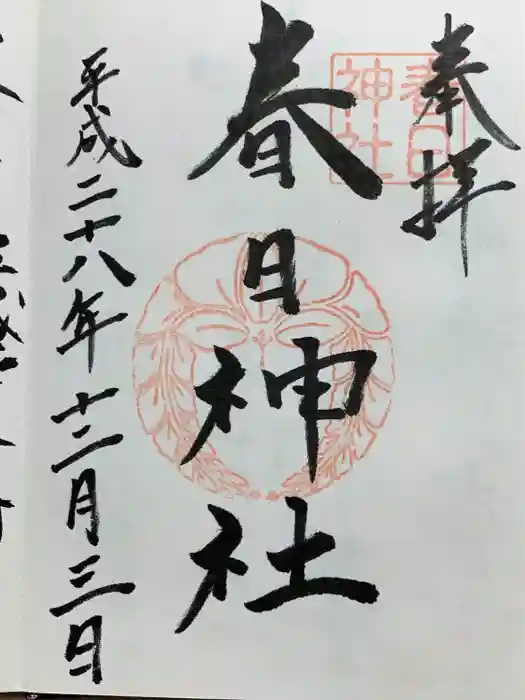 奉拝
春日神社
春日神社
平成二十八年十二月三日